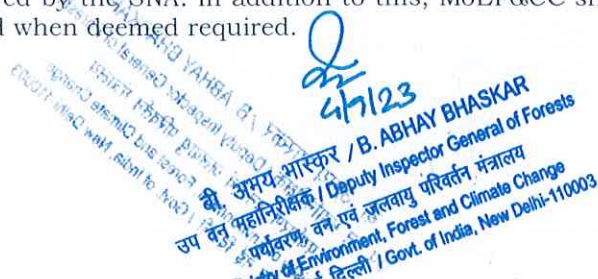 ed by the SNA. In addition to this, MoEF&CC s
d when deemed required.
4/7/23
बी. अभय भास्कर / B. ABHAY BHASKAR
उप वन महानिरीक्षक / Deputy Inspector General of Forests
पर्यावरण, वन एवं जलवायु परिवर्तन मंत्रालय
of Environment, Forest and Climate Change
दिल्ली / Govt. of India, New Delhi-110003